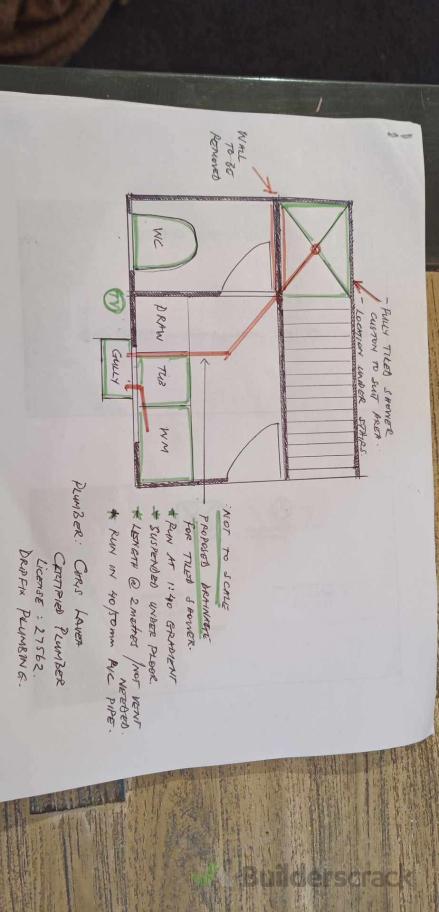 WALL
TO BE
REMOVED
- FULLY TILED SHOWER
CUSTOM TO SUIT AREA.
- LOCATION UNDER STAIRS
WC
TV
DRAW
TUB
WM
GULLY
NOT TO SCALE
PROPOSED DRAINAGE
FOR TILED SHOWER.
* RUN AT 1:40 GRADIENT
* SUSPENDED UNDER FLOOR
* LENGTH @ 2 METRES / NOT VENT
NEEDED.
* RUN IN 40/50MM PVC PIPE.
PLUMBER: CHRIS
CERTIFIED PLUMBER
LICENSE: 27562
PLUMBING.
Builderscrack